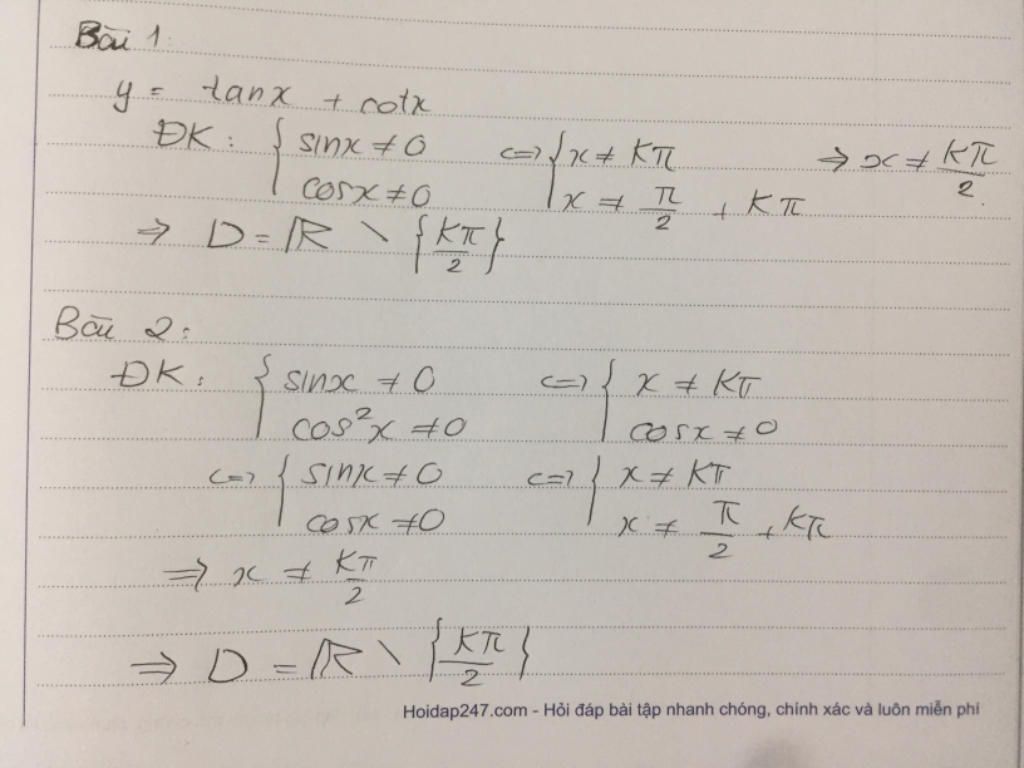 Bài 1:
y = tanx + cotx
ĐK: { sinx ≠ 0 <=> { x ≠ kπ => x ≠ kπ/2
cosx ≠ 0 x ≠ π/2 + kπ
=> D = ℝ \ {kπ/2}
Bài 2:
ĐK: { sinx ≠ 0 <=> { x ≠ kπ
cos²x ≠ 0 cosx ≠ 0
<=> { sinx ≠ 0 <=> { x ≠ kπ
cosx ≠ 0 x ≠ π/2 + kπ
=> x ≠ kπ/2
=> D = ℝ \ {kπ/2}
Hoidap247.com - Hỏi đáp bài tập nhanh chóng, chính xác và luôn miễn phí